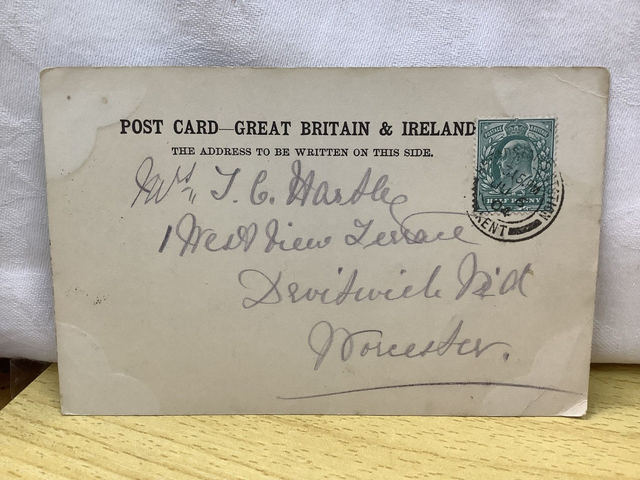 POST CARD—GREAT BRITAIN & IRELAND
THE ADDRESS TO BE WRITTEN ON THIS SIDE.
HALFPENNY
KENT
Mrs T. C. Hartle
1 West View Terrace
Droitwich Rd
Worcester.